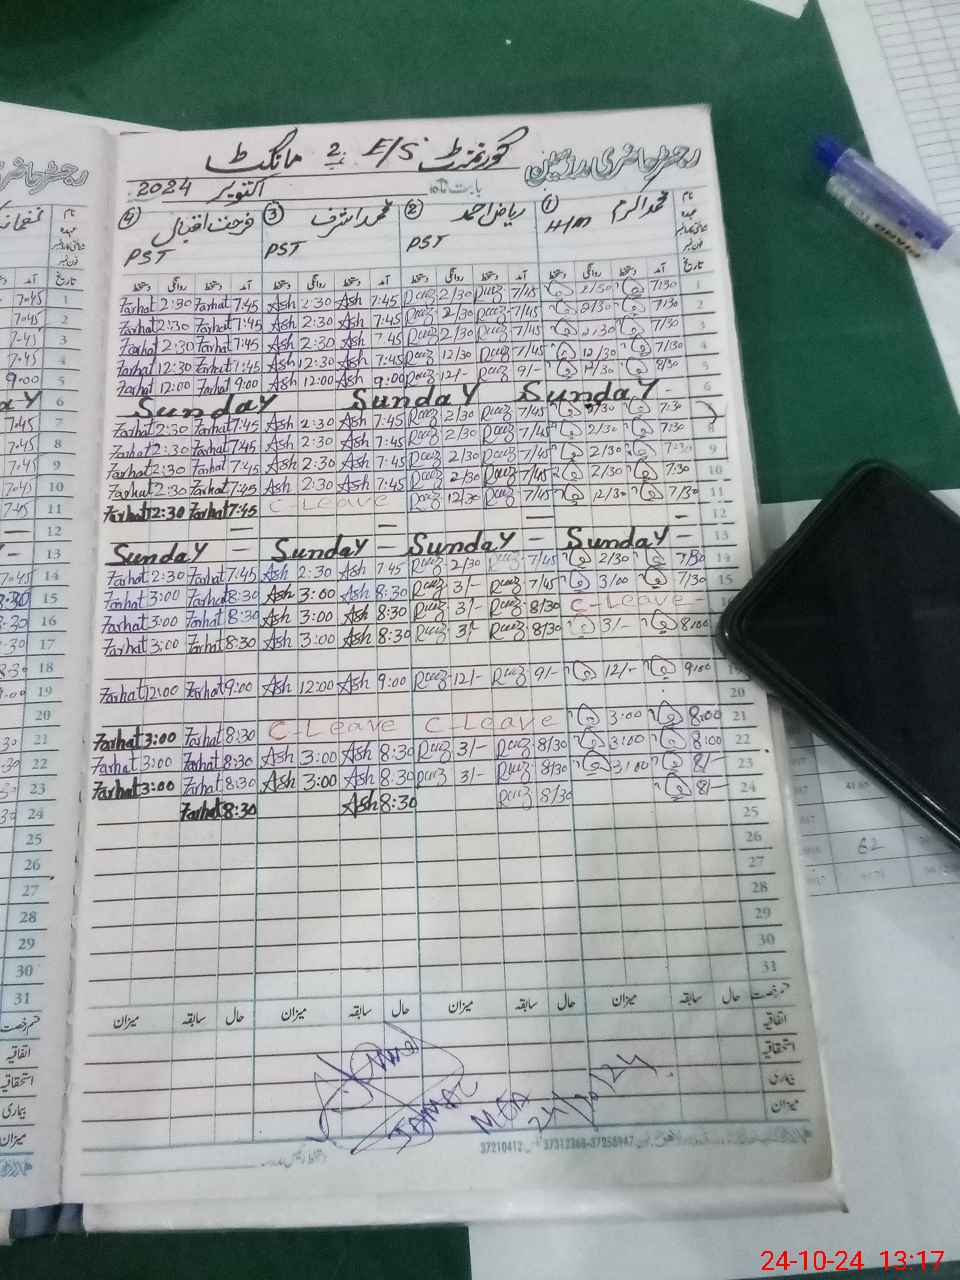 رجسٹر حاضری مدرسین گورنمنٹ E/S 2 مانکٹ
بابت ماہ اکتوبر 2024
نام محمد اکرم ① ریاض احمد ② محمد اشرف ③ فرحت اقبال
عہدہ H/M PST PST PST
تاریخ آمد دستخط روانگی دستخط آمد دستخط روانگی دستخط آمد دستخط روانگی دستخط آمد دستخط روانگی دستخط
1 7/30 2/30 7/45 Riaz 2/30 Riaz 7:45 Ash 2:30 Ash 7:45 Farhat 2:30 Farhat
2 7/30 2/30 7/45 Riaz 2/30 Riaz 7:45 Ash 2:30 Ash 7:45 Farhat 2:30 Farhat
3 7/30 2/30 7/45 Riaz 2/30 Riaz 7:45 Ash 2:30 Ash 7:45 Farhat 2:30 Farhat
4 7/30 12/30 7/45 Riaz 12/30 Riaz 7:45 Ash 12:30 Ash 7:45 Farhat 12:30 Farhat
5 8/30 9/- Riaz 12/- Riaz 9:00 Ash 12:00 Ash 9:00 Farhat 12:00 Farhat
6 Sunday Sunday Sunday
7 7:30 2/30 7/45 Riaz 2/30 Riaz 7:45 Ash 2:30 Ash 7:45 Farhat 2:30 Farhat
8 7:30 2/30 7/45 Riaz 2/30 Riaz 7:45 Ash 2:30 Ash 7:45 Farhat 2:30 Farhat
9 7:30 2/30 7/45 Riaz 2/30 Riaz 7:45 Ash 2:30 Ash 7:45 Farhat 2:30 Farhat
10 7:30 2/30 7/45 Riaz 2/30 Riaz 7:45 Ash 2:30 Ash 7:45 Farhat 2:30 Farhat
11 7/30 12/30 7/45 Riaz 12/30 Riaz C-Leave 7:45 Farhat 12:30 Farhat
12 – – – –
13 Sunday – Sunday – Sunday – Sunday –
14 7/30 2/30 7/45 Riaz 2/30 Riaz 7:45 Ash 2:30 Ash 7:45 Farhat 2:30 Farhat
15 7/30 3/00 7/45 Riaz 3/- Riaz 8:30 Ash 3:00 Ash 8:30 Farhat 3:00 Farhat
C-Leave 8/30 Riaz 3/- Riaz 8:30 Ash 3:00 Ash 8:30 Farhat 3:00 Farhat
8:00 3/- 8/30 Riaz 3/- Riaz 8:30 Ash 3:00 Ash 8:30 Farhat 3:00 Farhat
19 9:00 12/- 9/- Riaz 12/- Riaz 9:00 Ash 12:00 Ash 9:00 Farhat 12:00 Farhat
20
21 8:00 3:00 C-Leave C-Leave 8:30 Farhat 3:00 Farhat
22 8:00 3:00 8/30 Riaz 3/- Riaz 8:30 Ash 3:00 Ash 8:30 Farhat 3:00 Farhat
23 8/- 3/00 8/30 Riaz 3/- Riaz 8:30 Ash 3:00 Ash 8:30 Farhat 3:00 Farhat
24 8/- 8/30 Riaz 8:30 Ash 8:30 Farhat
25
26
27
28
29
30
31
قسم رخصت حال سابقہ میزان حال سابقہ میزان حال سابقہ میزان
اتفاقیہ
استحقاقیہ
بیماری
میزان
MEA
24/10/24
37210412 37312368-37256947
7.45 1
7.45 2
7.45 3
7.45 4
9:00 5
6
7.45 7
7.45 8
7.45 9
7.45 10
7.45 11
12
13
7.45 14
8:30 15
8:30 16
8:30 17
18
9:00 19
20
21
22
23
24
25
26
27
28
29
30
31
قسم رخصت
اتفاقیہ
استحقاقیہ
بیماری
میزان
PIANO
62
24-10-24 13:17